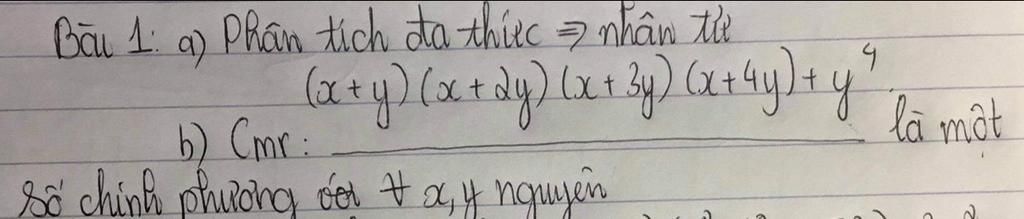 Bài 1: a) Phân tích đa thức ⇒ nhân tử
(x+y)(x+2y)(x+3y)(x+4y)+y⁴
b) Cmr: ____________________ là một
số chính phương với ∀ x,y nguyên